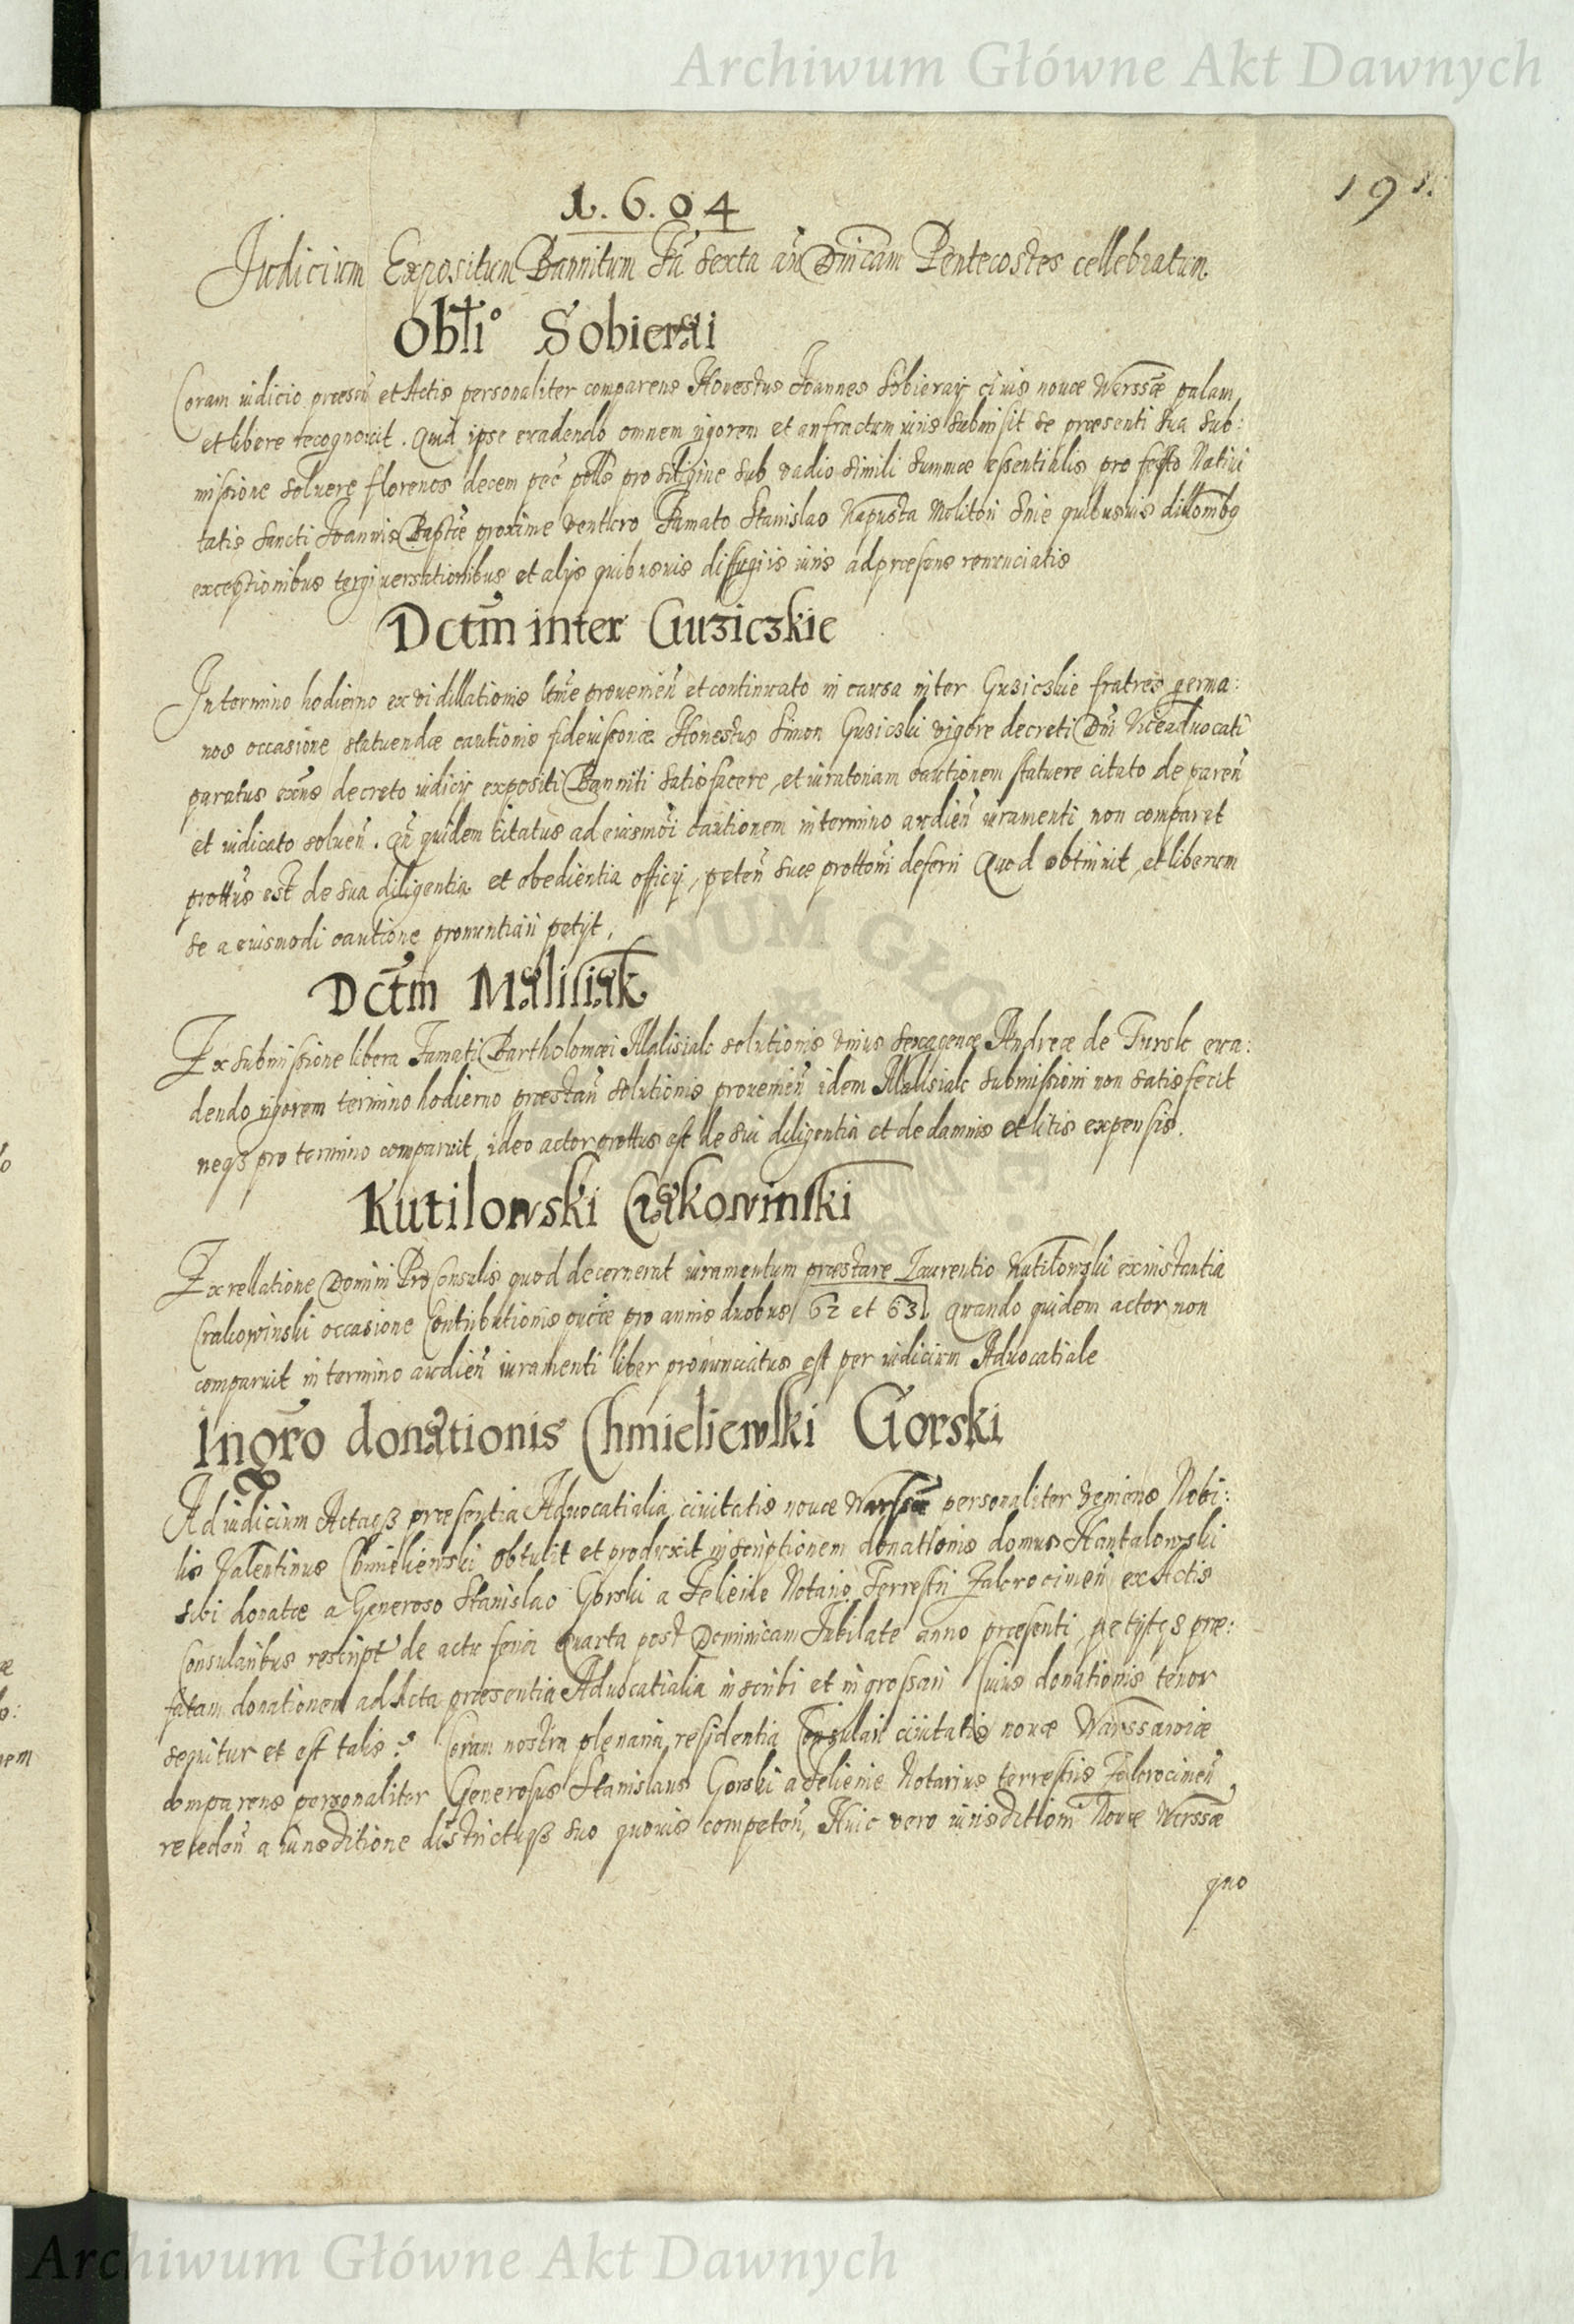 Archiwum Główne Akt Dawnych
191.
1.6.04
Judicium Expositum Bannitum Fã Sexta añ Dnicam Pentecostes cellebratum
Obłi° Sobierai
Coram iudicio præsen̄ et Actis personaliter comparens Honestus Joannes Sobieray ciuis nouæ Werssæ palam
et libere recognouit. Quia ipse euadendo omnem rigorem et anfractum iuris submisit se præsenti sua sub:
missione soluere florenos decem pec̃ pollõ pro siligine sub vadio simili summæ essentialis pro festo Natiui
tatis Sancti Joannis Baptæ proxime venturo Famato Stanislao Kapusta Molitori quibusuis
exceptionibus tergiuersationibus et alijs quibusuis diffugiis iuris ad præsens renunciatis
Dctm̃ inter Guziczkie
In termino hodierno ex vi dillationis prouenien̄ et continuato in causa inter Gusiczkie fratres germa:
nos occasione statuendæ cautionis fideiussoriæ Honestus Simon Gusiczki vigore decreti Dni Viceaduocati
paratus decreto iudicij expositi Banniti satisfacere, et iuratoriam cautionem statuere citato de paren̄
et iudicato soluen̄. quidem citatus ad eiusmõi cautionem in termino audien̄ iuramenti non comparet
prottus est de sua diligentia et obedientia officij, peten̄ suæ prottoni deferri Quod obtinuit, et liberum
se a eiusmodi cautione pronuntiari petijt.
Dctm̃ Malisiak
Ex submissione libera Famati Bartholomæi Malisiak solutionis vnius sexagenæ Andreæ de Tursk eua:
dendo rigorem termino hodierno præstan̄ solutionis prouenien̄ idem Malisiak submissioni non satisfecit
neqȝ pro termino comparuit, ideo actor prottus est de sui diligentia et de damnis et litis expensis.
Kutilowski Crakowinski
Ex rellatione Domini Proconsulis quod decernerat iuramentum præstare Laurentio Kutilowski ex instantia
Crakowinski occasione Contributionis pro annis duobus 62 et 63, Quando quidem actor non
comparuit in termino audien̄ iuramenti liber pronunciatus est per iudicium Aduocatiale
Ingro donationis Chmieliewski Gorski
Ad iudicium Actaqȝ præsentia Aduocatialia ciuitatis nouæ Warssæ personaliter veniens Nobi:
lis Valentinus Chmieliewski obtulit et produxit inscriptionem donationis domus Kantalowski
sibi donatæ a Generoso Stanislao Gorski a Notario Terrestri Zakrocimen̄ ex Actis
Consularibus rescript de actu feria Quarta post Dominicam Jubilate anno præsenti petijtqȝ præ:
fatam donationem ad Acta præsentia Aduocatialia inscribi et ingrossari Cuius donationis tenor
sequitur et est talis: Coram nostra plenaria residentia Consulari ciuitatis nouæ Warssawiæ
comparens personaliter Generosus Stanislaus Gorski a Notarius terrestris Zakrocimen̄
receden̄ a iurisditione districtuqȝ suo quouis competen̄, Huic vero iurisditioni Nouæ Werssæ
quo
Archiwum Główne Akt Dawnych